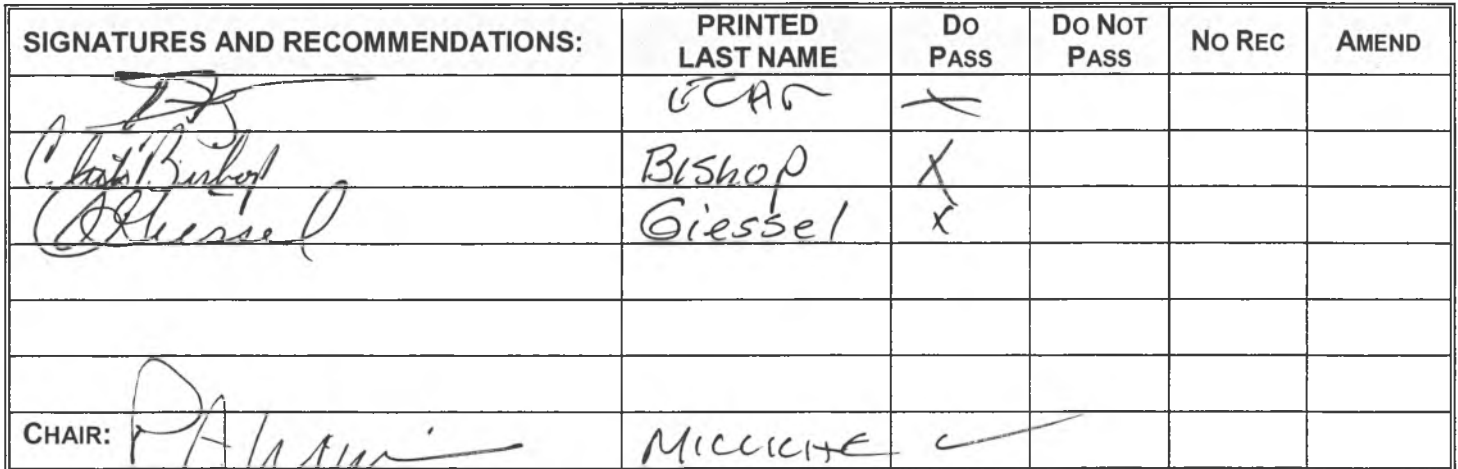 SIGNATURES AND RECOMMENDATIONS: PRINTED LAST NAME DO PASS DO NOT PASS NO REC AMEND
X
Click Bishop Bishop X
Giessel Giessel X
CHAIR: MICCICHE ✓